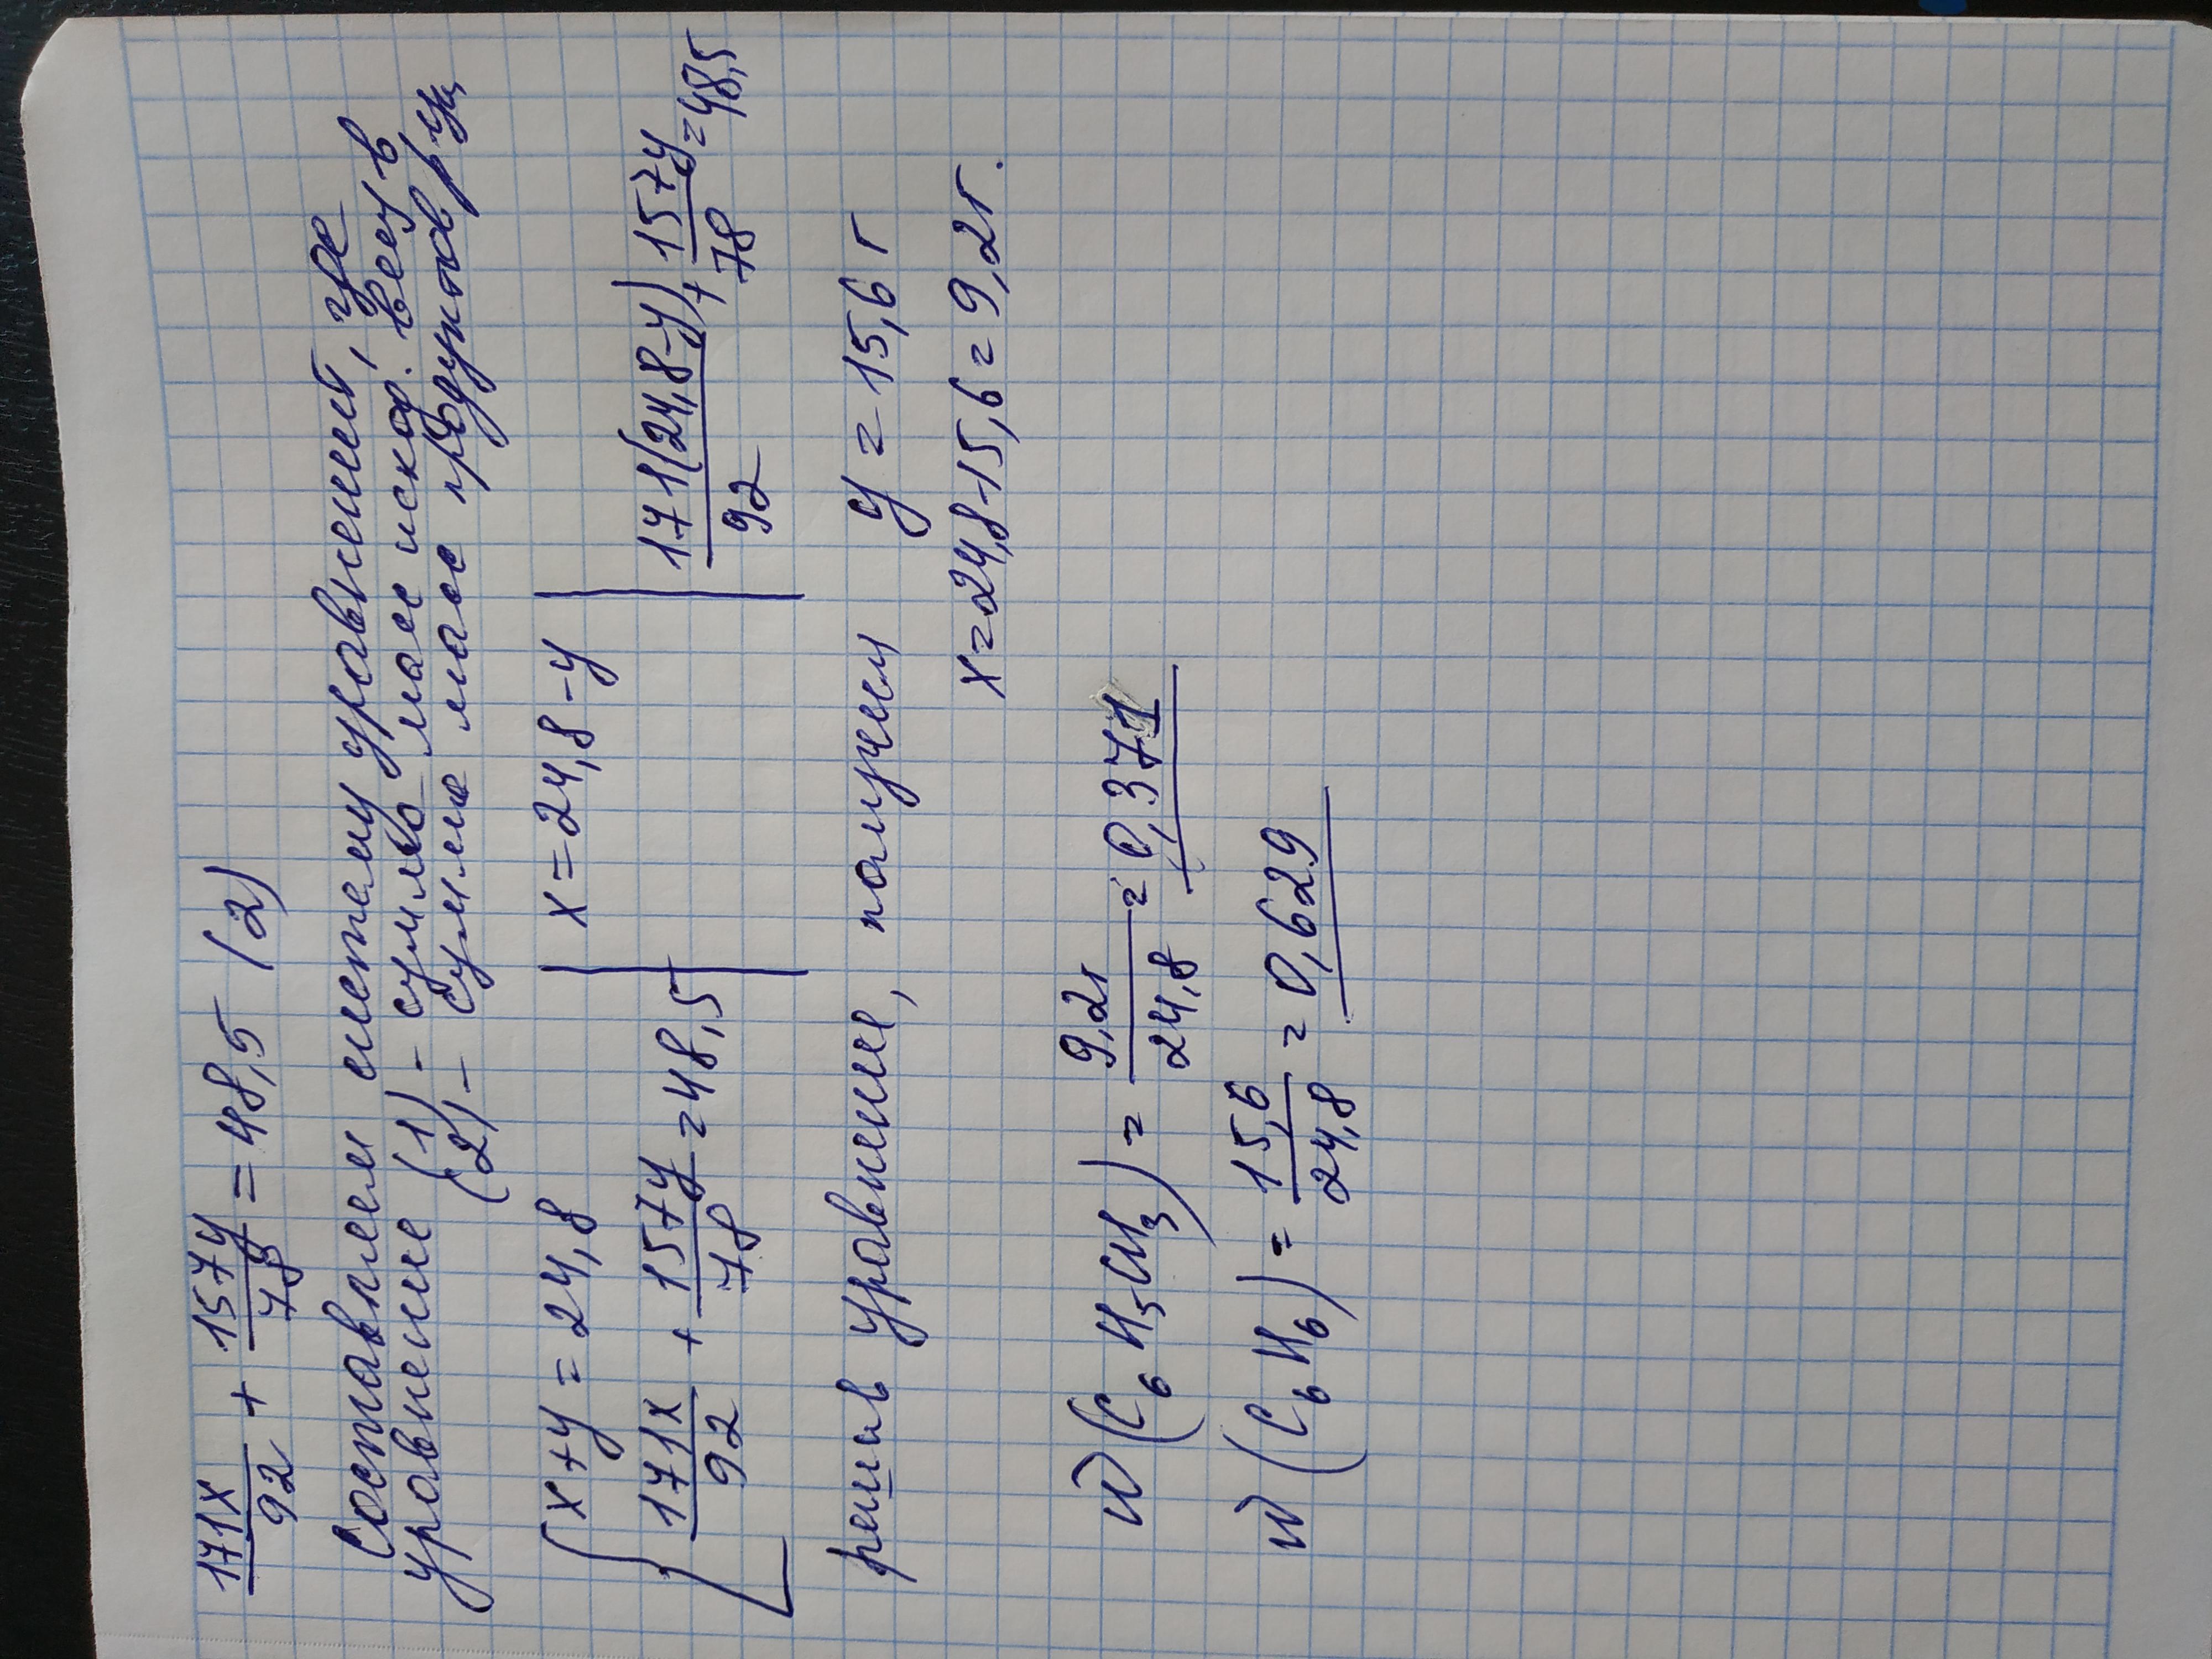 171x/92 + 157y/78 = 48,5 (2)
Составляем систему уравнений, где
уравнение (1) - сумма масс исход. вещ в
(2) - сумма масс продуктов р-ции
{ x+y = 24,8 | x = 24,8-y |
171x/92 + 157y/78 = 48,5 | | 171(24,8-y)/92 + 157y/78 = 48,5
решив уравнение, получаем y = 15,6 г
x = 24,8-15,6 = 9,2г.
W(C₆H₅CH₃) = 9,2г/24,8 = 0,371
W(C₆H₆) = 15,6/24,8 = 0,629